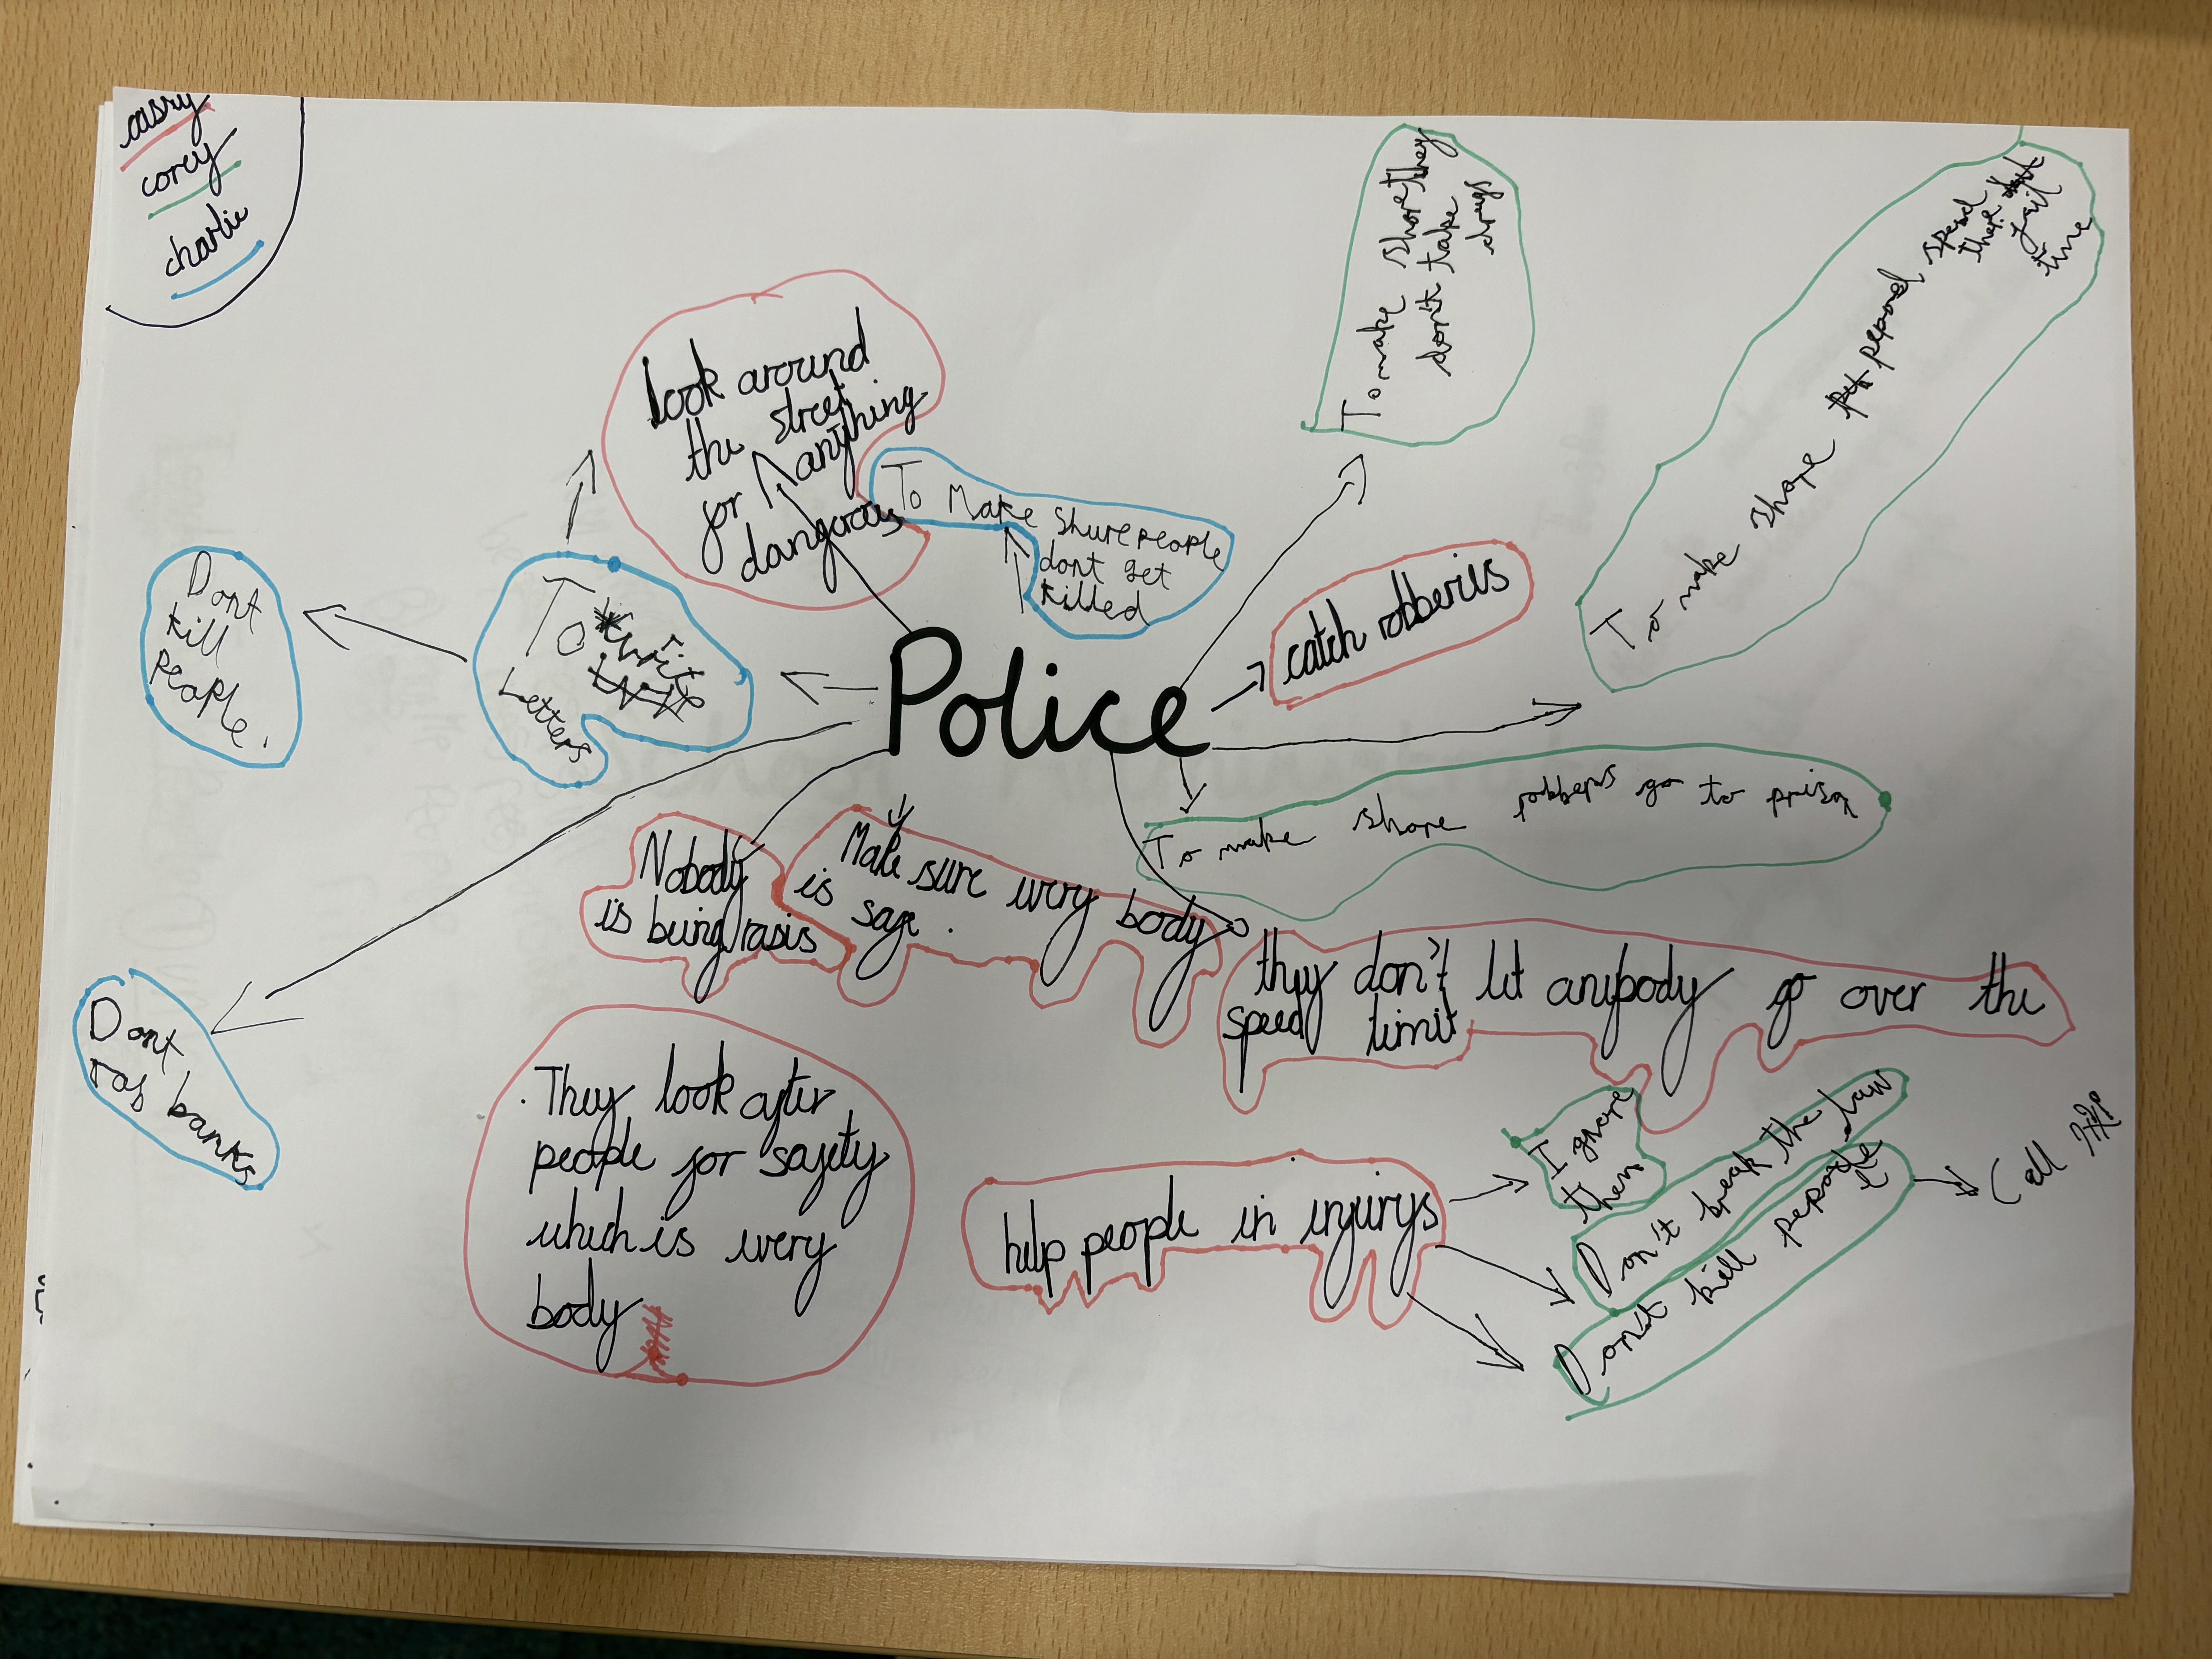 corey
charlie
look around
the street
for anything
dangerous
To Make Shure people
dont get
killed
To make shore they
don't take
drugs
To make shore
spend
jail
time
catch robberies
Dont
kill
people.
To
Letters
Police
To make shore robbers go to prison
Nobody
is being rasis
Make sure every body
is safe.
they don't let anybody go over the
speed limit
Dont
rob banks
. They look after
people for safety
which is every
body
help people in injurys
I gnore
them
Don't break the law
Don't kill
Call